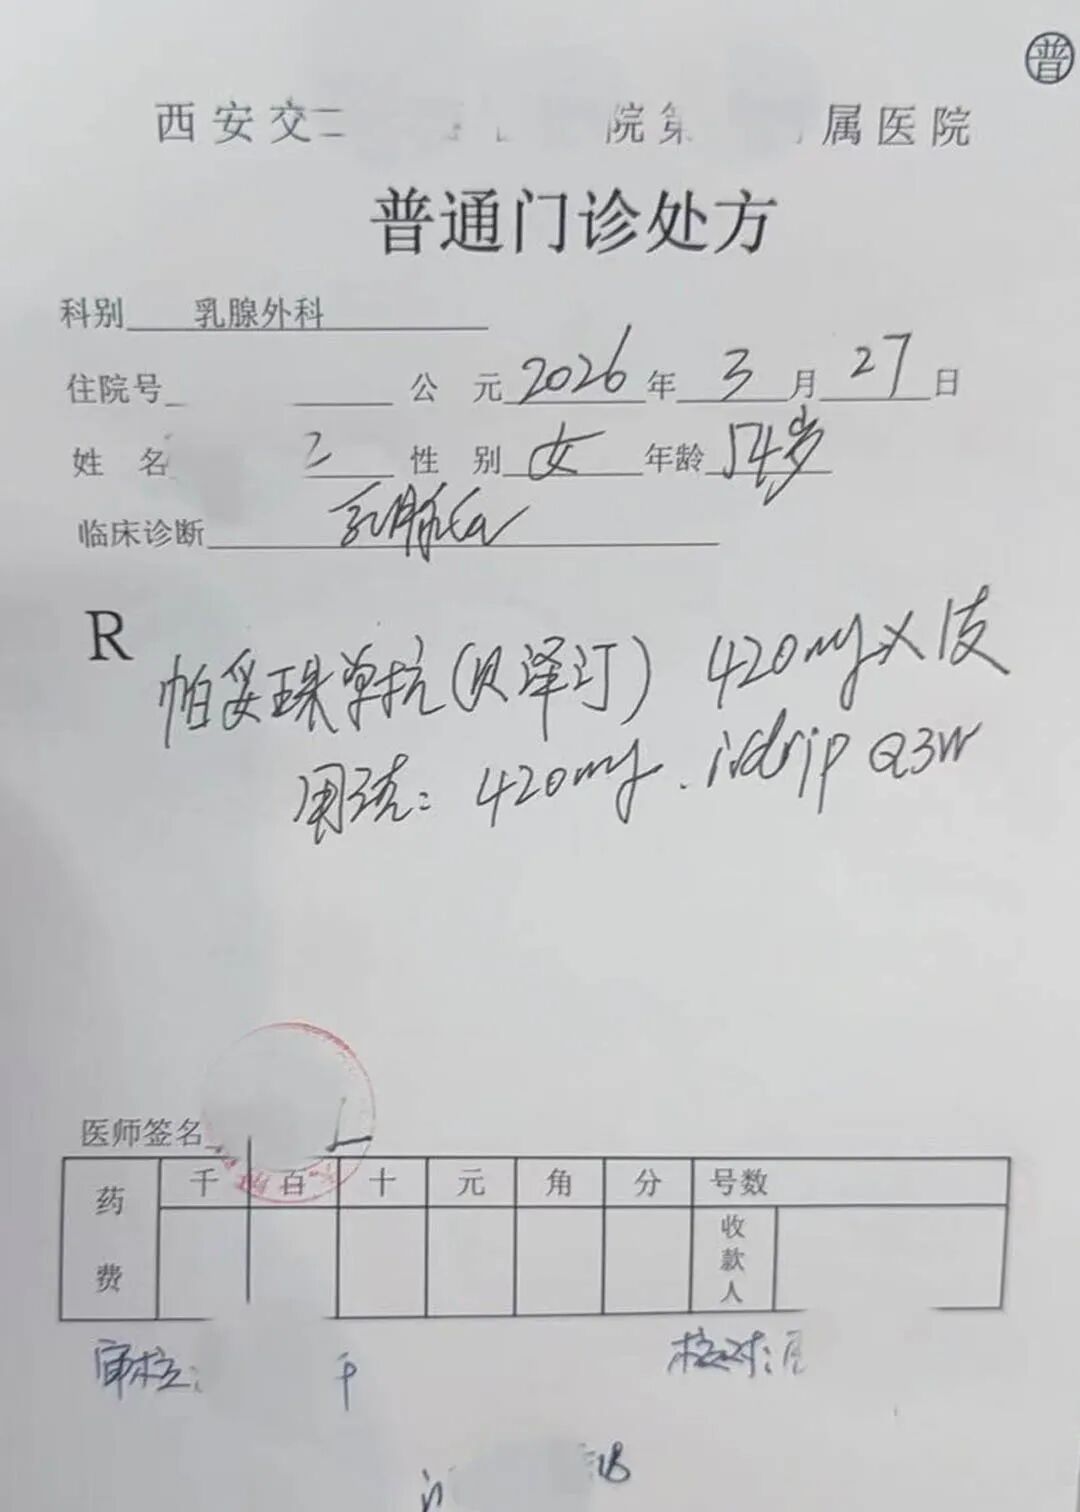 普
西安交 院第 属医院
普通门诊处方
科别 乳腺外科
住院号 公元 2026 年 3 月 27 日
姓名 性别 女 年龄 54岁
临床诊断 乳腺Ca
R
帕妥珠单抗(贝泽汀) 420mg×1支
用法: 420mg. ivdrip Q3W
医师签名
药费 千 百 十 元 角 分 号数
收款人
审核: 核对: